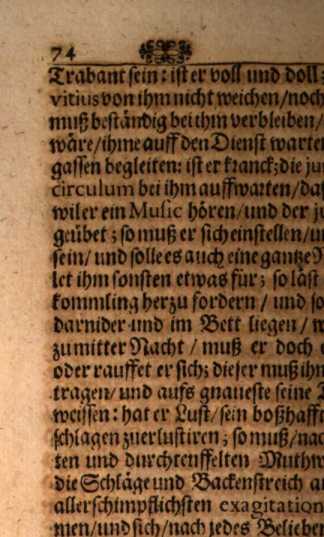 74
Trabant sein: ist er voll und doll;
vitius von ihm nicht weichen/noch
muß beständig bei ihm verbleiben/
wäre/ihme auff den Dienst warten
gassen begleiten: ist er kranck; die ju
circulum bei ihm auffwarten/daß
wil er ein Music hören/und der ju
geübet; so muß er sich einstellen/un
sein/und solle es auch eine gantze N
let ihm sonsten etwas für; so läst
kommling herzu fordern/und so
darnider und im Bett liegen/w
zu mitter Nacht/muß er doch
oder rauffet er sich; dieser muß ihn
tragen/und aufs gnaueste seine
weissen: hat er Lust/sein boßhafft
schlagen zuerlustiren; so muß/nach
ten und durchteuffelten Muthw
die Schläge und Backenstreich a
allerschimpflichsten exagitation
men/und sich/nach jedes Belieben